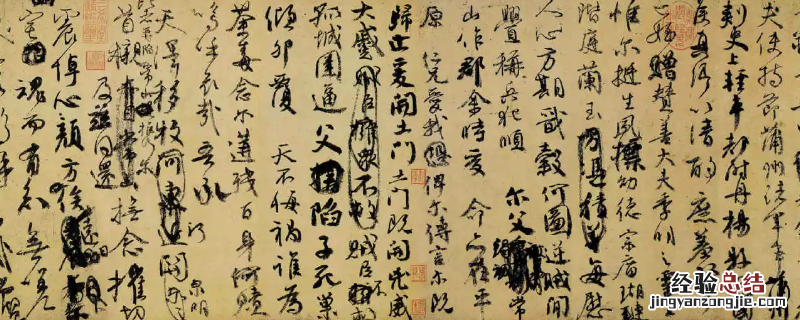 夫使持節蒲州諸軍事蒲州
刺史上輕車都尉丹楊縣
侯真卿以清酌庶羞
贈贊善大夫季明之靈
惟爾挺生夙標幼德宗廟瑚璉
階庭蘭玉每慰
人心方期戩穀何圖逆賊間
釁稱兵犯順爾父常
山作郡余時受命亦在平
原仁兄愛我俾爾傳言爾既
歸止爰開土門土門既開兇威
大蹙賊臣不
孤城圍逼父陷子死巢
傾卵覆天不悔禍誰為
荼毒念爾遘殘百身何贖
嗚呼哀哉吾承
天澤移牧河關泉明
首櫬及茲同還撫念摧切
震悼心顏方俟遠日
宅魂而有知無嗟
经验总结
www.jingyanzongjie.com